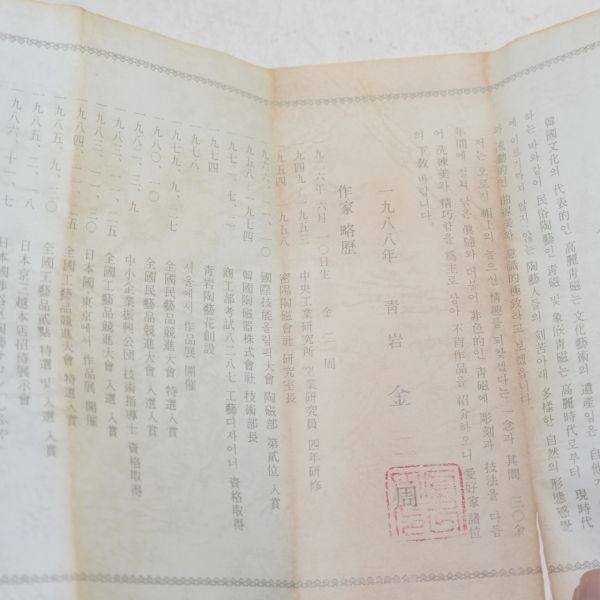 韓國文化의 代表的인 高麗靑磁는 文化藝術의 遺産임은 自他가
하는 바와같이 民俗陶藝인 靑磁 및 象嵌靑磁는 高麗時代로부터 現時代
에 이르기까지 많지 않는 陶藝人들의 刻苦아래 多樣한 自然의 形態感覺
와 流動的인 曲線美와 意識的極致라고 보겠읍니다.
저는 오로지 祖上의 높으신 情趣를 되찾겠다는 一念과 其間 三○余
年間에 걸쳐 닦은 眞髓와 더불어 非色的인 靑磁에 彫刻과 技法을 다듬
어 洗凍美와 精巧함을 爲主로 삼아 不肖作品을 紹介하오니 愛好家諸位
의 下敎 바랍니다.
一九八八年 靑岩 金 二 周
作家 略歷
一九二六年 六月 一○日生 金 二 周
一九四九~一九五三 中央工業研究所 窯業研究員 四年研修
一九五四~一九五八 密陽陶磁會社 研究室長
一九六六、一一、一○ 國際技能올림픽大會 陶磁部 第貳位 入賞
一九五八~一九七四 韓國陶磁器株式會社 技術部長
一九七二、一、七 商工部考試八二八七 工藝디자이너 資格取得
一九七四 靑岩陶藝花創設
一九七八 서울에서 作品展 開催
一九七九、九、二七 全國民藝品競進大會 特選入賞
一九八○、一○ 全國民藝品競進大會 入選入賞
一九八二、三、九 中小企業振興公團 技術指導士 資格取得
一九八三、一一、二五 全國工藝品競進大會 入選入賞
一九八三、一一、三○ 日本國 東京에서 作品展 開催
一九八四、一一、一五 全國工藝品競進大會 特選入賞
一九八五、九、三○ 全國工藝品貳點 特選 및 入選 入賞
一九八五、二、一八 日本京三越本店招待展示會
一九八六、十一、七